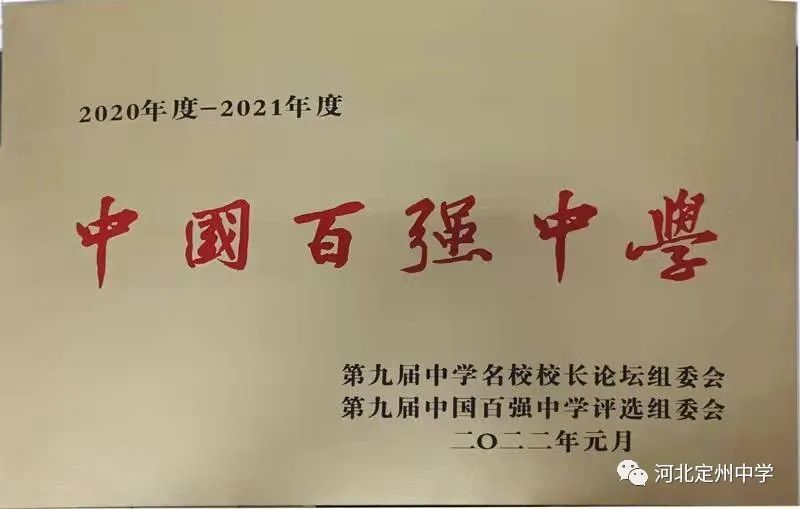 2020年度-2021年度
中國百强中學
第九届中学名校校长论坛组委会
第九届中国百强中学评选组委会
二〇二二年元月
河北定州中学